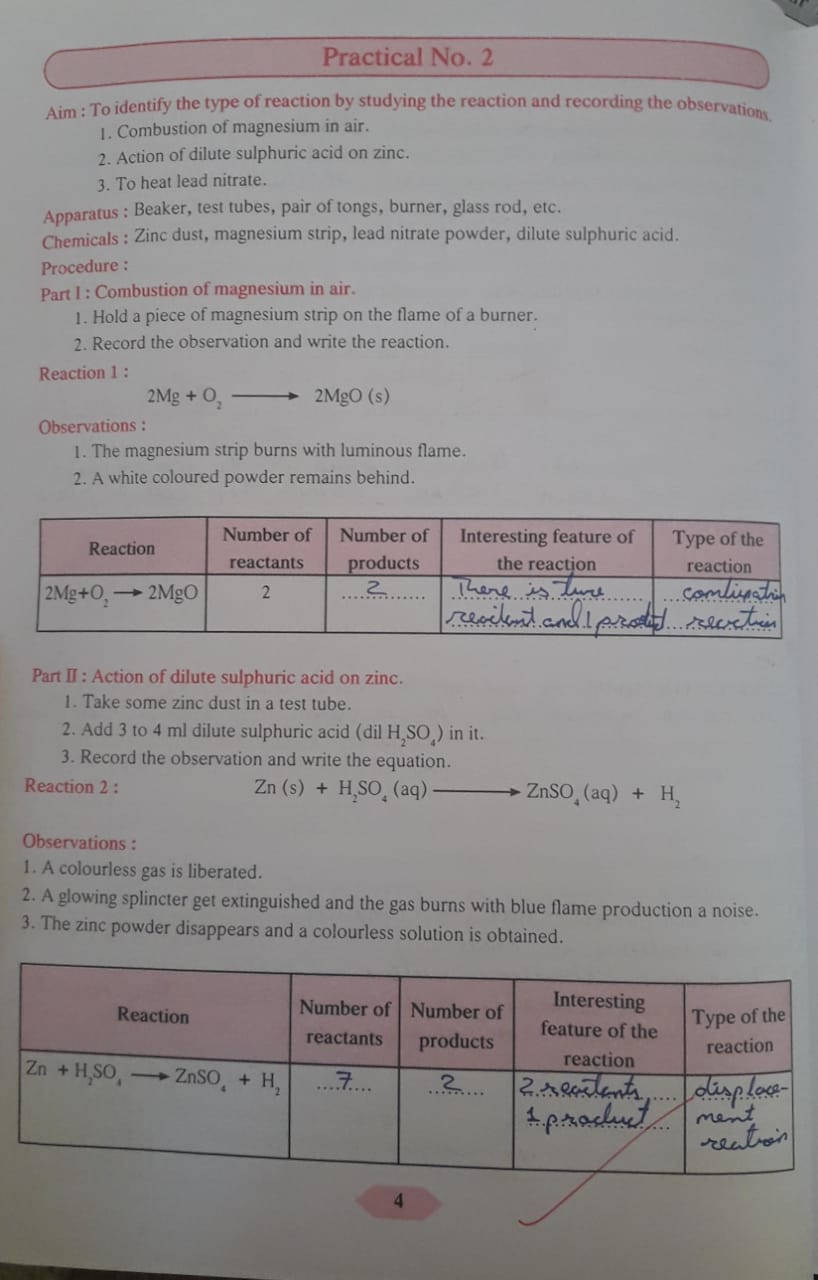 Practical No. 2
Aim : To identify the type of reaction by studying the reaction and recording the observations.
1. Combustion of magnesium in air.
2. Action of dilute sulphuric acid on zinc.
3. To heat lead nitrate.
Apparatus : Beaker, test tubes, pair of tongs, burner, glass rod, etc.
Chemicals : Zinc dust, magnesium strip, lead nitrate powder, dilute sulphuric acid.
Procedure :
Part I : Combustion of magnesium in air.
1. Hold a piece of magnesium strip on the flame of a burner.
2. Record the observation and write the reaction.
Reaction 1 :
2Mg + O₂ ⟶ 2MgO (s)
Observations :
1. The magnesium strip burns with luminous flame.
2. A white coloured powder remains behind.
Reaction
Number of
reactants
Number of
products
Interesting feature of
the reaction
Type of the
reaction
2Mg+O₂ ⟶ 2MgO
2
2
There is
reacitent and 1 product
reaction
Part II : Action of dilute sulphuric acid on zinc.
1. Take some zinc dust in a test tube.
2. Add 3 to 4 ml dilute sulphuric acid (dil H₂SO₄) in it.
3. Record the observation and write the equation.
Reaction 2 :
Zn (s) + H₂SO₄ (aq) ⟶ ZnSO₄ (aq) + H₂
Observations :
1. A colourless gas is liberated.
2. A glowing splincter get extinguished and the gas burns with blue flame production a noise.
3. The zinc powder disappears and a colourless solution is obtained.
Reaction
Number of
reactants
Number of
products
Interesting
feature of the
reaction
Type of the
reaction
Zn + H₂SO₄ ⟶ ZnSO₄ + H₂
7
2
2 reacitents
1 product
displace-
ment
reation
4